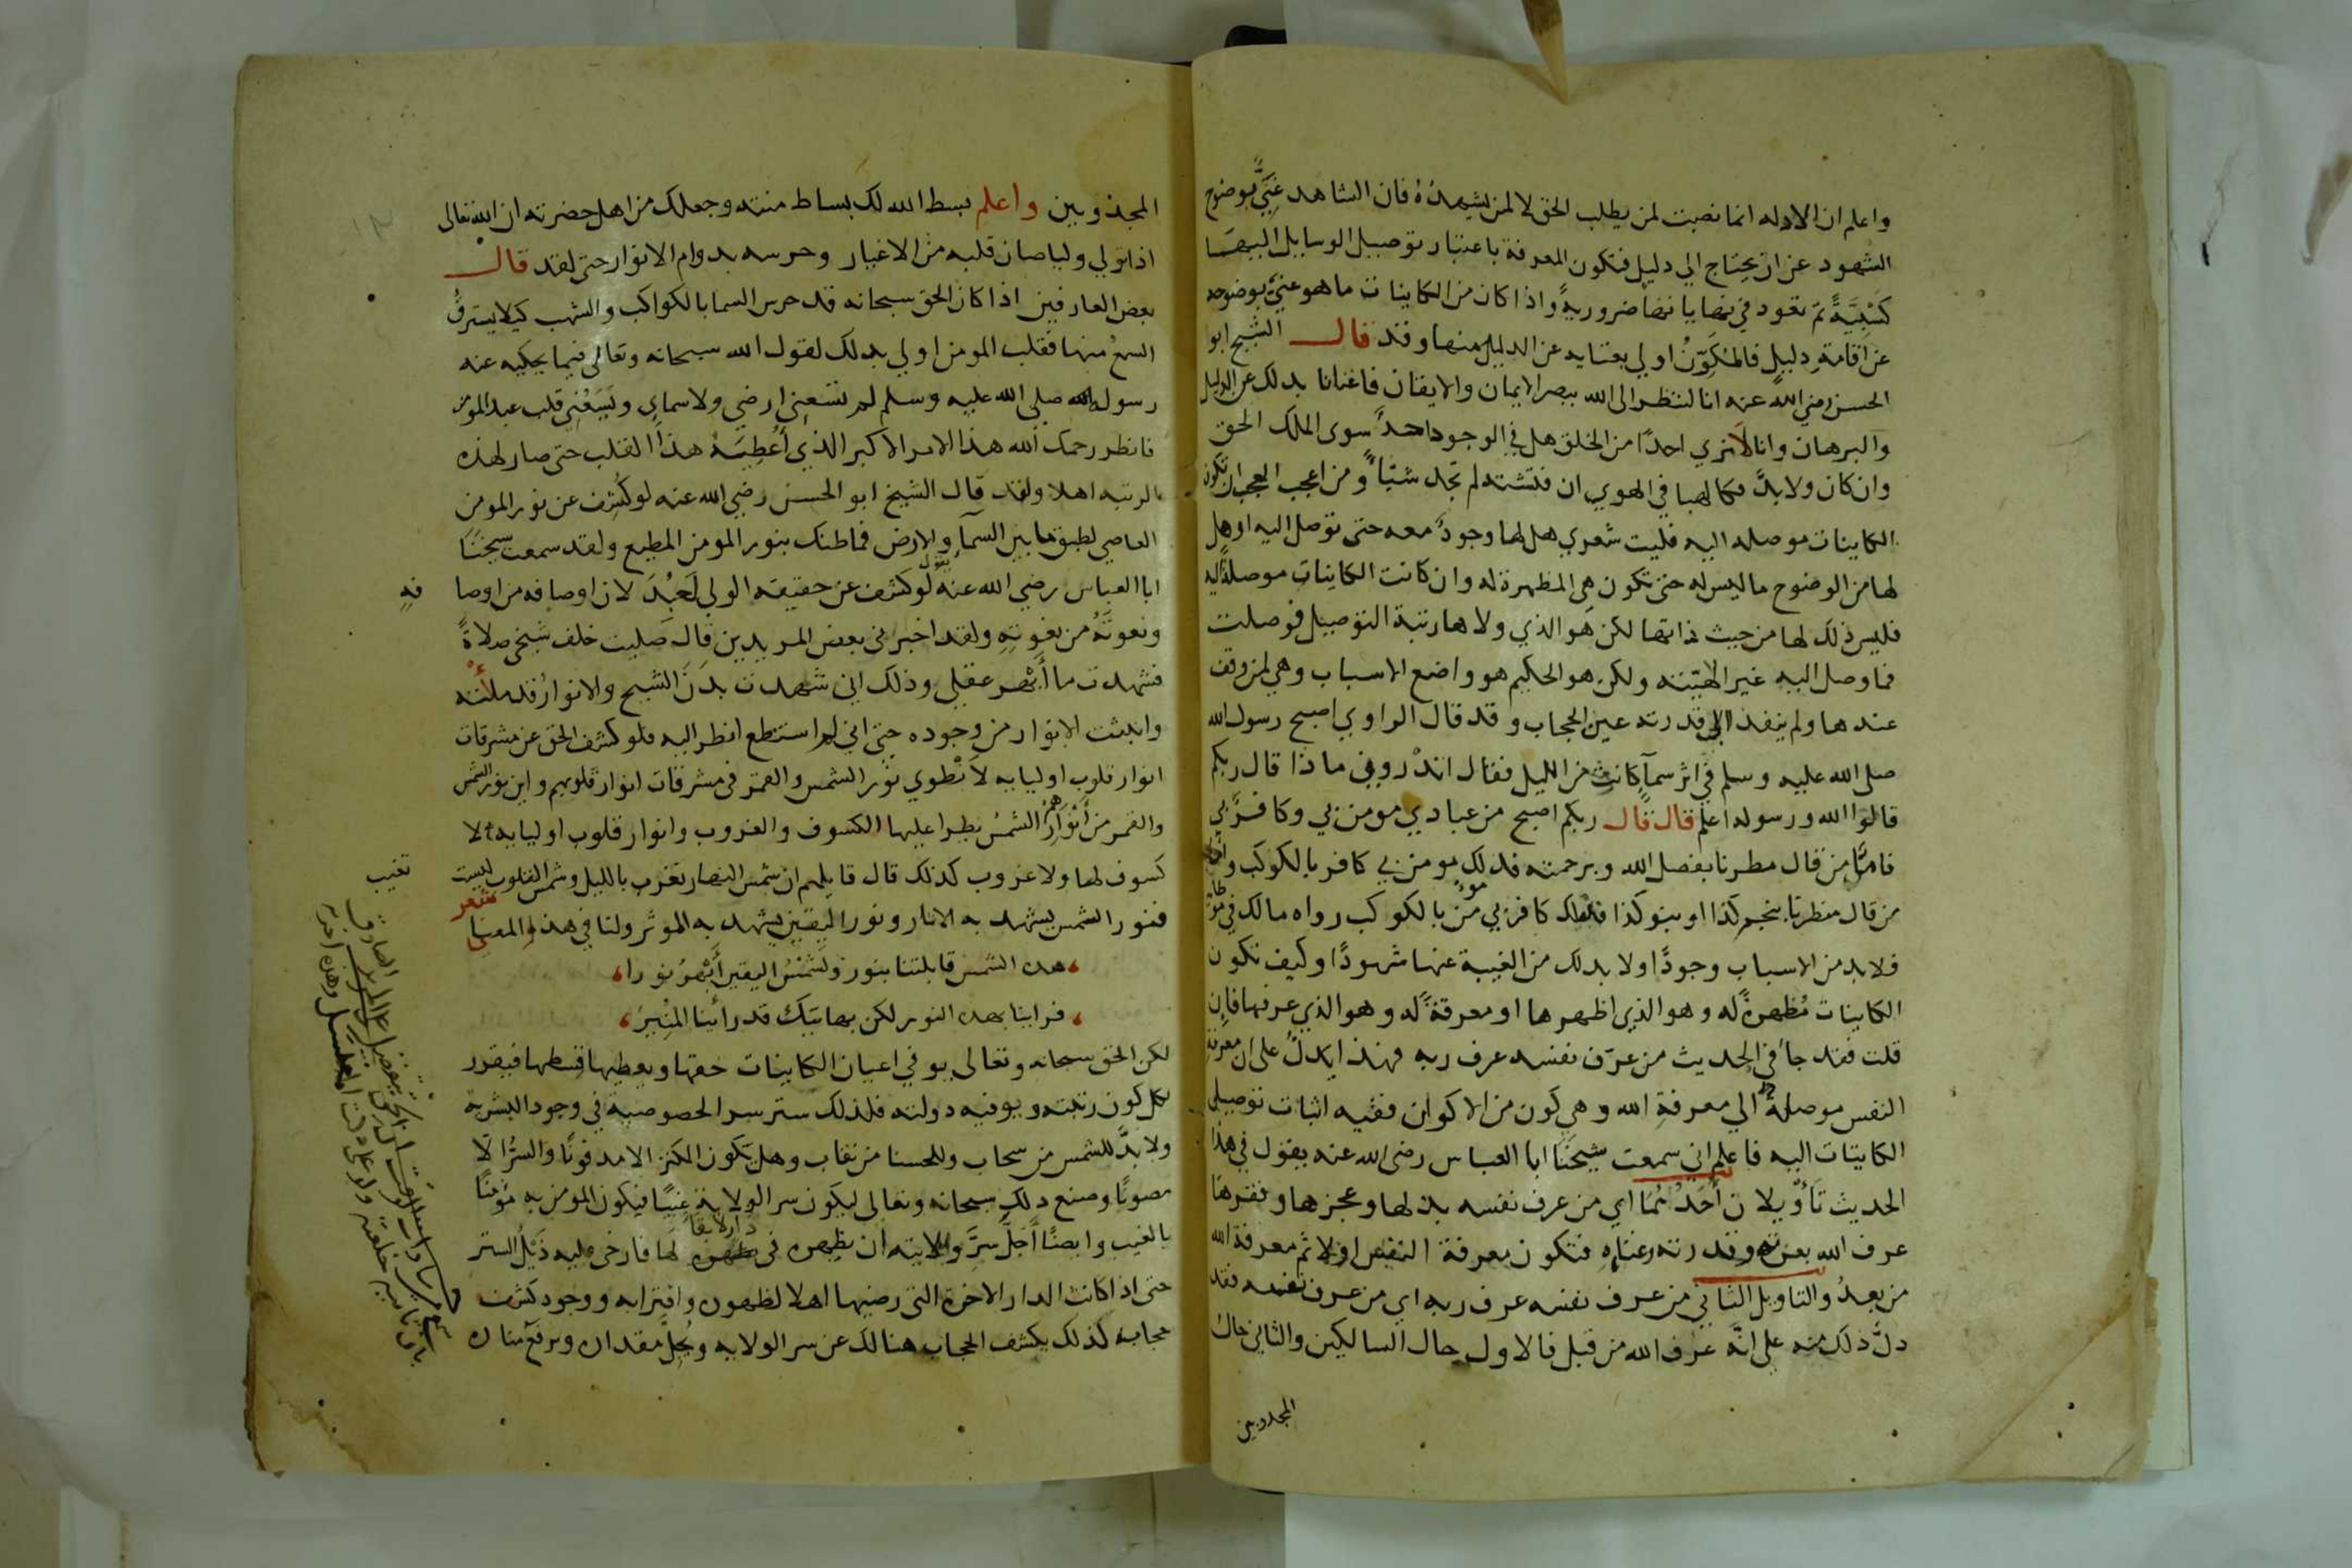 واعلم ان الادله انما نصبت لمن يطلب الحق لا لمن يشهده فان الشاهد غني بوضوح
الشهود عن ان يحتاج الي دليل فتكون المعرفة باعتبار توصيل الوسايل اليها
كسبية ثم تعود في نهاياتها ضرورية واذا كان من الكاينات ما هو غني بوضوحه
عن اقامة دليل فالمكون اولي بغنايه عن الدليل منها وقد قال الشيخ ابو
الحسن رضي الله عنه انا لننظر الى الله ببصر الايمان والايقان فاغنانا بذلك عن الدليل
والبرهان وانا لا نري احدًا من الخلق هل في الوجود احد سوى الملك الحق
وان كان ولا بد فكالهبا في الهوي ان فتشته لم تجد شيئا ومن اعجب العجب ان تكون
الكاينات موصله اليه فليت شعري هل لها وجود معه حتى توصل اليه او هل
لها من الوضوح ما ليس له حتى تكون هي المظهرة له وان كانت الكاينات موصلة اليه
فليس ذلك لها من حيث ذاتها لكن هو الذي ولاها رتبة التوصيل فوصلت
فما وصل اليه غير الهيته ولكن هو الحكيم هو واضع الاسباب وهي لمن وقف
عندها ولم ينفذ الي قدرته عين الحجاب وقد قال الراوي اصبح رسول الله
صلى الله عليه وسلم في اثر سمآ كانت من الليل فقال اتدروني ماذا قال ربكم
قالوا الله ورسوله اعلم قال قال ربكم اصبح من عبادي مومن بي وكافر بي
فاما من قال مطرنا بفضل الله وبرحمته فذلك مومن بي كافر بالكوكب واما
من قال مطرنا بنجم كذا او بنو كذا فذلك كافر بي مومن بالكوكب رواه مالك في موطا
فلا بد من الاسباب وجودًا ولا بد لك من الغيبة عنها شهودًا وكيف تكون
الكاينات مظهرة له وهو الذي اظهرها او معرفة له وهو الذي عرفها فان
قلت فقد جا في الحديث من عرف نفسه عرف ربه فهذا يدل على ان معرفة
النفس موصلة الي معرفة الله وهي كون من الاكوان ففيه اثبات توصيل
الكاينات اليه فاعلم اني سمعت شيخنا ابا العباس رضى الله عنه يقول في هذا
الحديث تأويلان أحدهما اي من عرف نفسه بذلها وعجزها وفقرها
عرف الله بعزته وقدرته وغناه فتكون معرفة النفس اولا ثم معرفة الله
من بعد والتاويل الثاني من عرف نفسه عرف ربه اي من عرف نفسه فقد
دل ذلك منه على انه عرف الله من قبل فالاول حال السالكين والثاني حال
المجذوبين
المجذوبين واعلم بسط الله لك بساط منته وجعلك من اهل حضرته ان الله تعالى
اذا تولي وليا صان قلبه من الاغيار وحرسه بدوام الانوار حتى لقد قال
بعض العارفين اذا كان الحق سبحانه قد حرس السما بالكواكب والشهب كيلا يسترق
السمع منها فقلب المومن اولي بذلك لقول الله سبحانه وتعالى فيما يحكيه عنه
رسول الله صلى الله عليه وسلم لم تسعني ارضي ولا سماي ويسعني قلب عبد المومن
فانظر رحمك الله هذا الامر الاكبر الذي أعطيه هذا القلب حتى صار لهذه
الرتبه اهلا ولقد قال الشيخ ابو الحسن رضي الله عنه لو كشف عن نور المومن
العاصي لطبق ما بين السمآ والارض فما ظنك بنور المومن المطيع ولقد سمعت شيخنا
ابا العباس رضي الله عنه يقول لو كشف عن حقيقة الولي لعبد لان اوصافه من اوصا فه
ونعوته من نعوته ولقد اخبرني بعض المريدين قال صليت خلف شيخي صلاة
فشهدت ما أبهر عقلي وذلك اني شهدت بدن الشيخ والانوار قد ملأته
وانبثت الانوار من وجوده حتى اني لم استطع انظر اليه فلو كشف الحق عن مشرقات
انوار قلوب اوليايه لانطوي نور الشمس والقمر في مشرقات انوار قلوبهم واين نور الشمس
والقمر من أنوارهم الشمس يطرا عليها الكسوف والغروب وانوار قلوب اوليايه لا
كسوف لها ولا غروب كذلك قال قايلهم ان شمس النهار تغرب بالليل وشمس القلوب ليست تغيب
شعر
فنور الشمس يشهد به الاثار ونور اليقين يشهد به المؤثر ولنا في هذا المعنى
هذه الشمس قابلتنا بنور ولشمس اليقين أبهر نورا
فراينا بهذه النور لكن بهاتيك قد رأينا المنير
لكن الحق سبحانه وتعالى يوفي اعيان الكاينات حقها ويعطيها قسطها فيقرر
لكل كون رتبته ويوفيه دولته فلذلك ستر سر الخصوصية في وجود البشريه
ولا بد للشمس من سحاب وللحسنا من نقاب وهل يكون الكنز الا مدفونًا والسر الا
مصونًا وصنع ذلك سبحانه وتعالى ليكون سر الولاية غيبًا فيكون المومن به مؤمنًا
بالغيب وايضًا أجل سر ولايته ان يظهره في دار لا بقا لها فارخى عليه ذيل الستر
حتى اذا كانت الدار الاخرة التي رضيها اهلا لظهوره واقترابه ووجود كشف
حجابه كذلك يكشف الحجاب هنالك عن سر الولايه ويجل مقداره ويرفع مناره